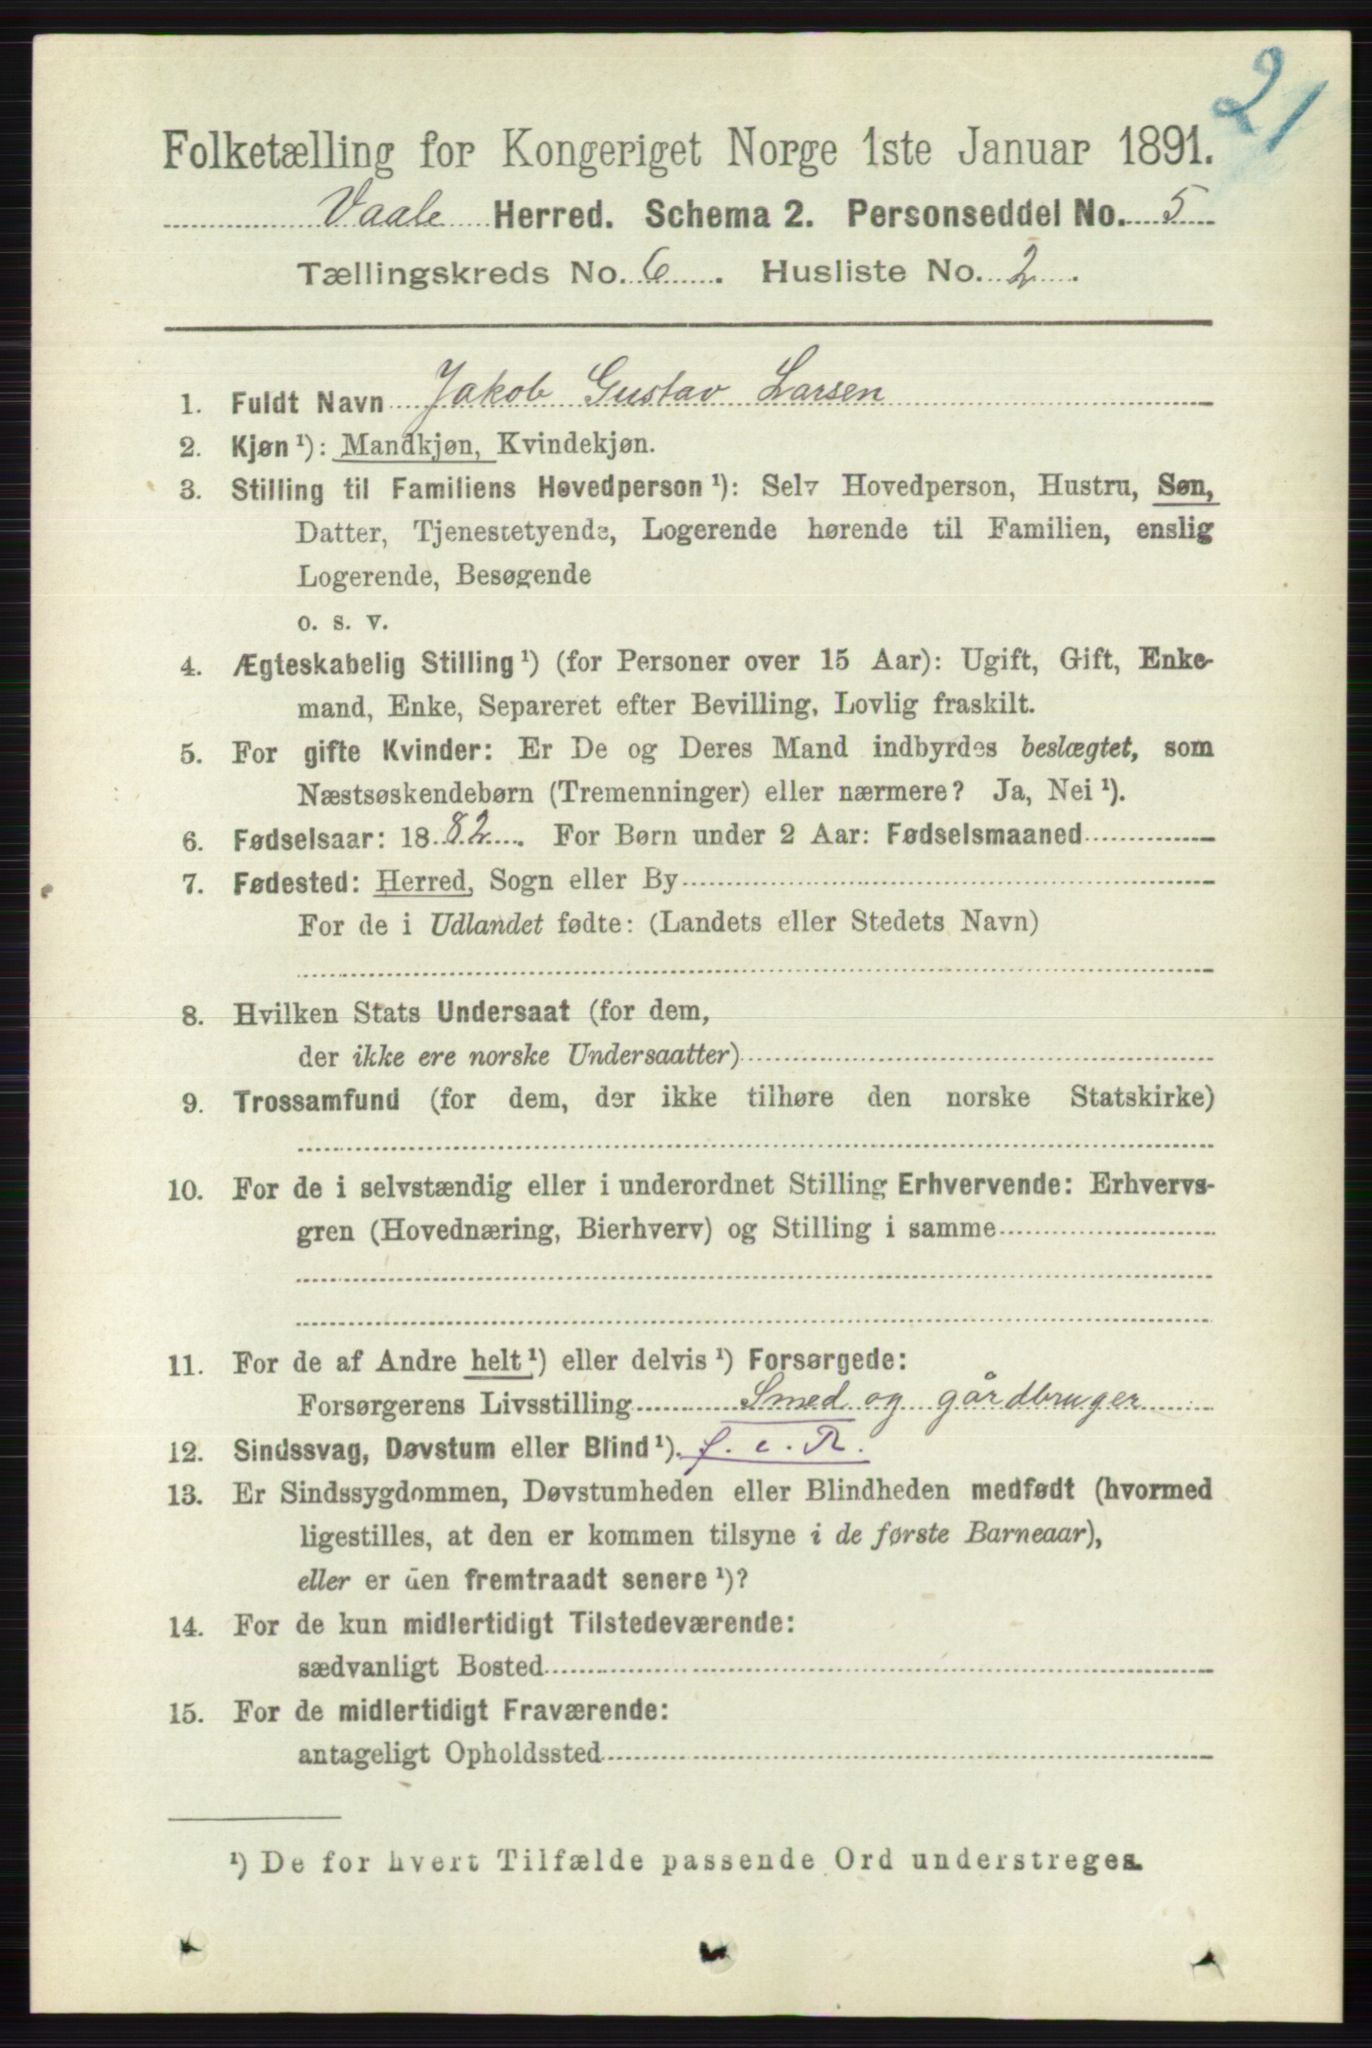 21
Folketælling for Kongeriget Norge 1ste Januar 1891.
Vaale Herred. Schema 2. Personseddel No. 5
Tællingskreds No. 6. Husliste No. 2.
1. Fuldt Navn Jakob Gustav Larsen
2. Kjøn ¹): Mandkjøn, Kvindekjøn.
3. Stilling til Familiens Hovedperson ¹): Selv Hovedperson, Hustru, Søn,
Datter, Tjenestetyende, Logerende hørende til Familien, enslig
Logerende, Besøgende
o. s. v.
4. Ægteskabelig Stilling ¹) (for Personer over 15 Aar): Ugift, Gift, Enke-
mand, Enke, Separeret efter Bevilling, Lovlig fraskilt.
5. For gifte Kvinder: Er De og Deres Mand indbyrdes beslægtet, som
Næstsøskendebørn (Tremenninger) eller nærmere? Ja, Nei ¹).
6. Fødselsaar: 1882. For Børn under 2 Aar: Fødselsmaaned
7. Fødested: Herred, Sogn eller By
For de i Udlandet fødte: (Landets eller Stedets Navn)
8. Hvilken Stats Undersaat (for dem,
der ikke ere norske Undersaatter)
9. Trossamfund (for dem, der ikke tilhøre den norske Statskirke)
10. For de i selvstændig eller i underordnet Stilling Erhvervende: Erhvervs-
gren (Hovednæring, Bierhverv) og Stilling i samme
11. For de af Andre helt ¹) eller delvis ¹) Forsørgede:
Forsørgerens Livsstilling Smed og gårdbruger
12. Sindssvag, Døvstum eller Blind ¹). f. c. R.
13. Er Sindssygdommen, Døvstumheden eller Blindheden medfødt (hvormed
ligestilles, at den er kommen tilsyne i de første Barneaar),
eller er den fremtraadt senere ¹)?
14. For de kun midlertidigt Tilstedeværende:
sædvanligt Bosted
15. For de midlertidigt Fraværende:
antageligt Opholdssted
¹) De for hvert Tilfælde passende Ord understreges.